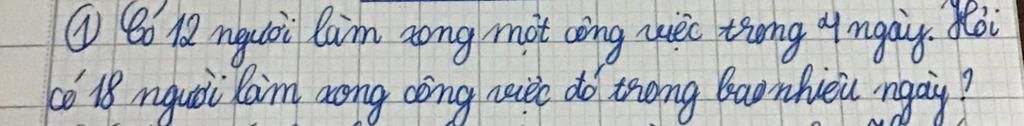 ① Có 12 người làm xong một công việc trong 4 ngày. Hỏi
có 18 người làm xong công việc đó trong bao nhiêu ngày?